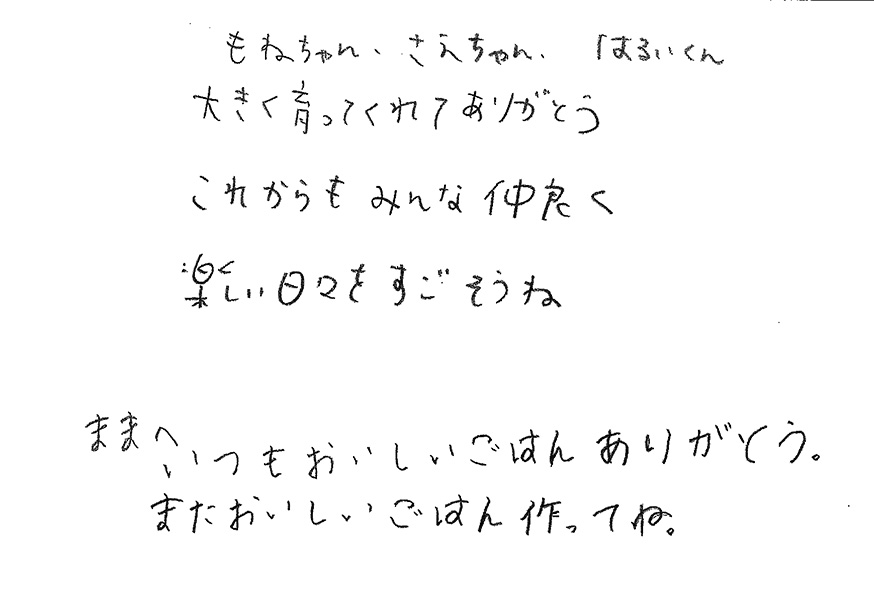 もねちゃん、さえちゃん、はるいくん
大きく育ってくれてありがとう
これからもみんな仲良く
楽しい日々をすごそうね
ままへ
いつもおいしいごはんありがとう。
またおいしいごはん作ってね。